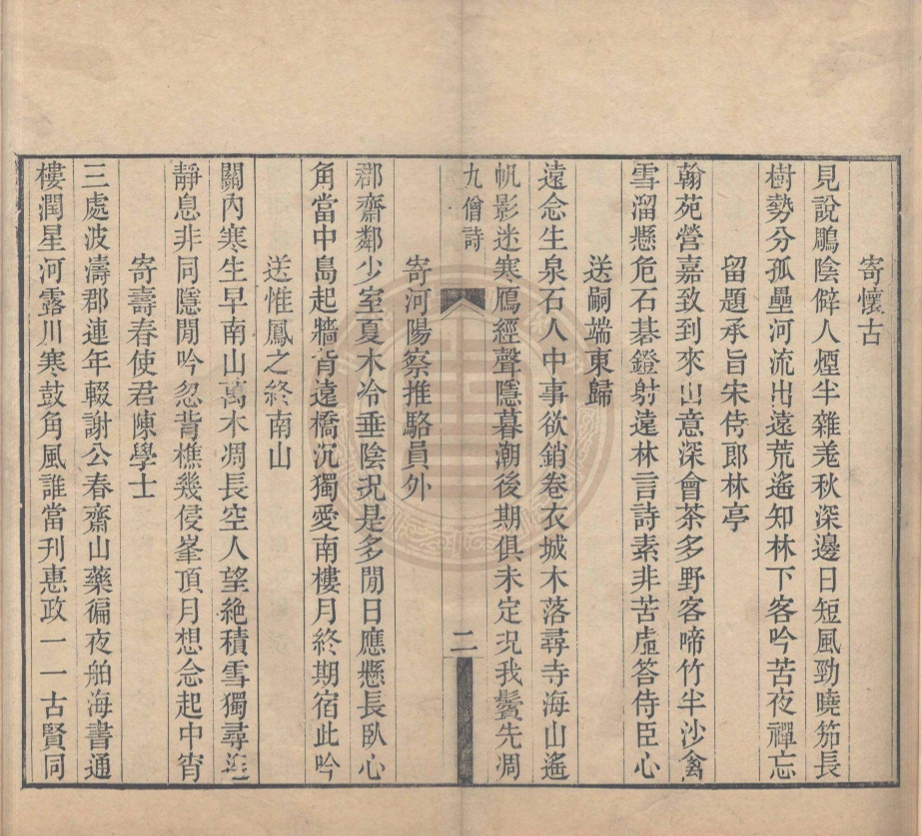 寄懷古
見說鵰陰僻人煙半雜羗秋深邊日短風勁曉笳長
樹勢分孤壘河流出遠荒遙知林下客吟苦夜禪忘
留題承旨宋侍郎林亭
翰苑營嘉致到來山意深會茶多野客啼竹半沙禽
雪溜懸危石碁鐙射遠林言詩素非苦虛答侍臣心
送嗣端東歸
遠念生泉石人中事欲銷卷衣城木落尋寺海山遙
帆影迷寒鴈經聲隱暮潮後期俱未定況我鬢先凋
九僧詩
二
寄河陽察推駱員外
郡齋鄰少室夏木冷垂陰況是多閒日應懸長臥心
角當中島起牆背遠橋沉獨愛南樓月終期宿此吟
送惟鳳之終南山
關內寒生早南山萬木凋長空人望絕積雪獨尋遙
靜息非同隱閒吟忽背樵幾侵峯頂月想念起中宵
寄壽春使君陳學士
三處波濤郡連年輟謝公春齋山藥徧夜舶海書通
樓潤星河露川寒鼓角風誰當刊惠政一一古賢同